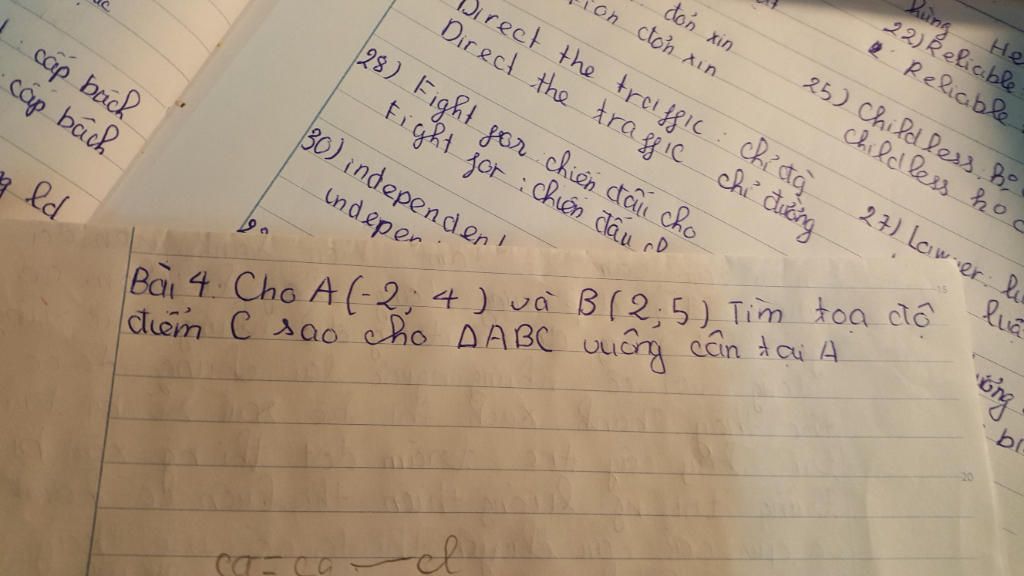 : cấp bách
cấp bách
ld
đơn xin
đơn xin
Direct the traffic : chỉ đg
Direct the traffic chỉ đường
28) Fight for chiến đấu cho
Fight for : chiến đấu
30) independent
indepen
22) Reliable
Reliable
25) Childless
childless
27) Lawyer:
luậ
Bài 4. Cho A(-2; 4) và B(2; 5) Tìm toạ độ
điểm C sao cho ΔABC vuông cân tại A
15
20